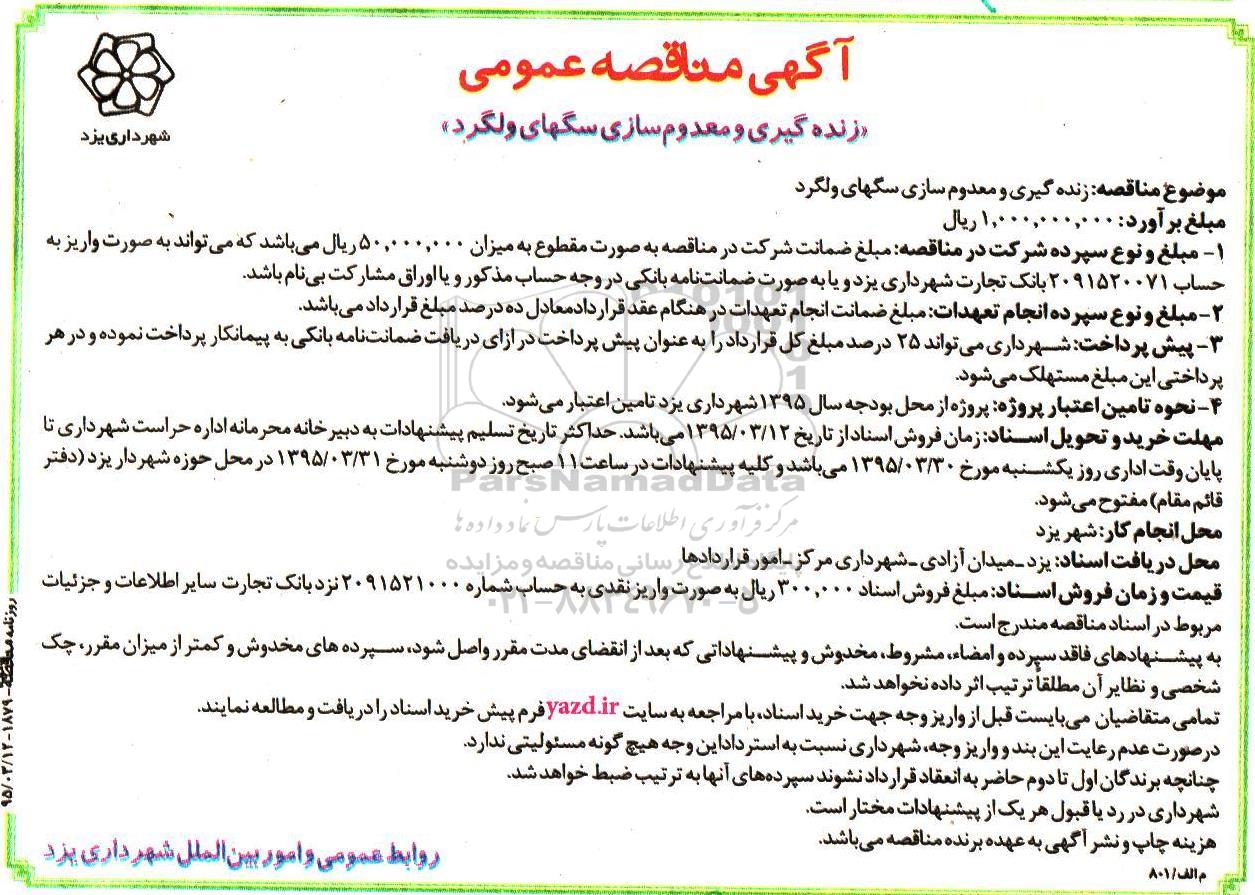 آگهی مناقصه عمومی
شهرداری یزد
«زنده گیری و معدوم سازی سگهای ولگرد»
موضوع مناقصه: زنده گیری و معدوم سازی سگهای ولگرد
مبلغ برآورد: ۱,۰۰۰,۰۰۰,۰۰۰ ریال
۱- مبلغ و نوع سپرده شرکت در مناقصه: مبلغ ضمانت شرکت در مناقصه به صورت مقطوع به میزان ۵۰,۰۰۰,۰۰۰ ریال می‌باشد که می‌تواند به صورت واریز به
حساب ۲۰۹۱۵۲۰۰۷۱ بانک تجارت شهرداری یزد و یا به صورت ضمانت‌نامه بانکی در وجه حساب مذکور و یا اوراق مشارکت بی‌نام باشد.
۲- مبلغ و نوع سپرده انجام تعهدات: مبلغ ضمانت انجام تعهدات در هنگام عقد قرارداد معادل ده درصد مبلغ قرارداد می‌باشد.
۳- پیش پرداخت: شهرداری می‌تواند ۲۵ درصد مبلغ کل قرارداد را به عنوان پیش پرداخت در ازای دریافت ضمانت‌نامه بانکی به پیمانکار پرداخت نموده و در هر
پرداختی این مبلغ مستهلک می‌شود.
۴- نحوه تامین اعتبار پروژه: پروژه از محل بودجه سال ۱۳۹۵ شهرداری یزد تامین اعتبار می‌شود.
مهلت خرید و تحویل اسناد: زمان فروش اسناد از تاریخ ۱۳۹۵/۰۳/۱۲ می‌باشد. حداکثر تاریخ تسلیم پیشنهادات به دبیرخانه محرمانه اداره حراست شهرداری تا
پایان وقت اداری روز یکشنبه مورخ ۱۳۹۵/۰۳/۳۰ می‌باشد و کلیه پیشنهادات در ساعت ۱۱ صبح روز دوشنبه مورخ ۱۳۹۵/۰۳/۳۱ در محل حوزه شهردار یزد (دفتر
قائم مقام) مفتوح می‌شود.
محل انجام کار: شهر یزد
محل دریافت اسناد: یزد - میدان آزادی - شهرداری مرکز - امور قراردادها
قیمت و زمان فروش اسناد: مبلغ فروش اسناد ۳۰۰,۰۰۰ ریال به صورت واریز نقدی به حساب شماره ۲۰۹۱۵۲۱۰۰۰ نزد بانک تجارت سایر اطلاعات و جزئیات
مربوط در اسناد مناقصه مندرج است.
به پیشنهادهای فاقد سپرده و امضاء، مشروط، مخدوش و پیشنهاداتی که بعد از انقضای مدت مقرر واصل شود، سپرده های مخدوش و کمتر از میزان مقرر، چک
شخصی و نظایر آن مطلقاً ترتیب اثر داده نخواهد شد.
تمامی متقاضیان می‌بایست قبل از واریز وجه جهت خرید اسناد، با مراجعه به سایت yazd.ir فرم پیش خرید اسناد را دریافت و مطالعه نمایند.
درصورت عدم رعایت این بند و واریز وجه، شهرداری نسبت به استرداد این وجه هیچ گونه مسئولیتی ندارد.
چنانچه برندگان اول تا دوم حاضر به انعقاد قرارداد نشوند سپرده‌های آنها به ترتیب ضبط خواهد شد.
شهرداری در رد یا قبول هر یک از پیشنهادات مختار است.
هزینه چاپ و نشر آگهی به عهده برنده مناقصه می‌باشد.
م الف/۸۰۱
روابط عمومی و امور بین الملل شهرداری یزد
ParsNamadData
مرکز فرآوری اطلاعات پارس نماد داده ها
پایگاه اطلاع رسانی مناقصه و مزایده
۰۲۱-۸۸۳۴۹۶۷۰-۵
روزنامه - ۱۸۷۹ - ۹۵/۰۳/۱۲